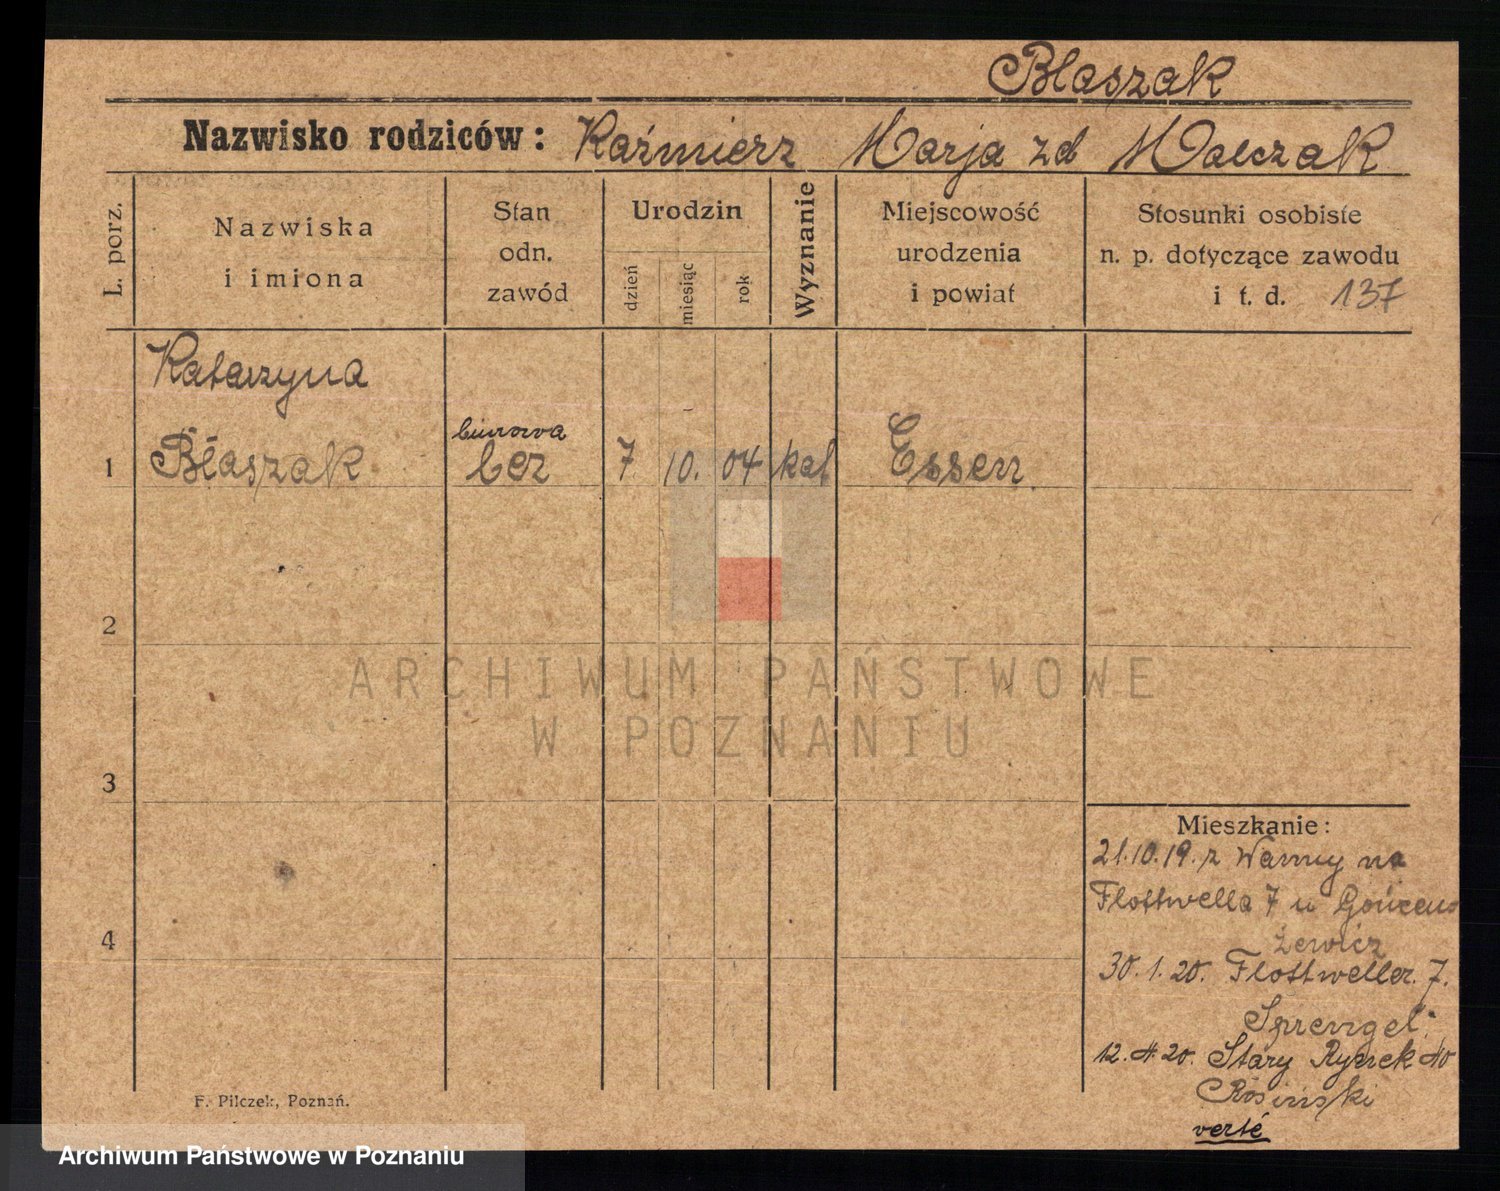 Blaszak
Nazwisko rodziców: Kaźmierz Marja zd Walczak
L. porz.
Nazwiska
i imiona
Stan
odn.
zawód
Urodzin
dzień
miesiąc
rok
Wyznanie
Miejscowość
urodzenia
i powiat
Stosunki osobiste
n. p. dotyczące zawodu
i t. d. 137
Katarzyna
biurowa
1 Błaszak bez 7 10. 04 kat Essen
2
3
4
ARCHIWUM PAŃSTWOWE
W POZNANIU
Mieszkanie:
21.10.19. z Warmy na
Flottwella 7 u
żewicz
30.1.20. Flottweller. 7.
Sprengel
12.4.20. Stary Rynek 40
Rosiński
verte
F. Pilczek, Poznań.
Archiwum Państwowe w Poznaniu